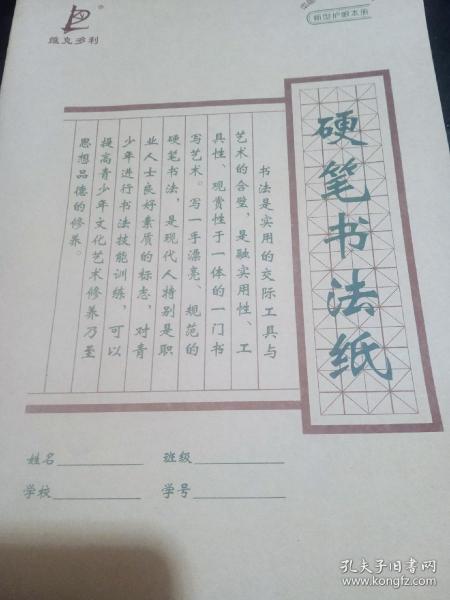 维克多利
新型护眼本册
硬笔书法纸
书法是实用的交际工具与
艺术的合璧，是融实用性、工
具性、观赏性于一体的一门书
写艺术。写一手漂亮、规范的
硬笔书法，是现代人特别是职
业人士良好素质的标志，对青
少年进行书法技能训练，可以
提高青少年文化艺术修养乃至
思想品德的修养。
姓名 班级
学校 学号
孔夫子旧书网
www.kongfz.com